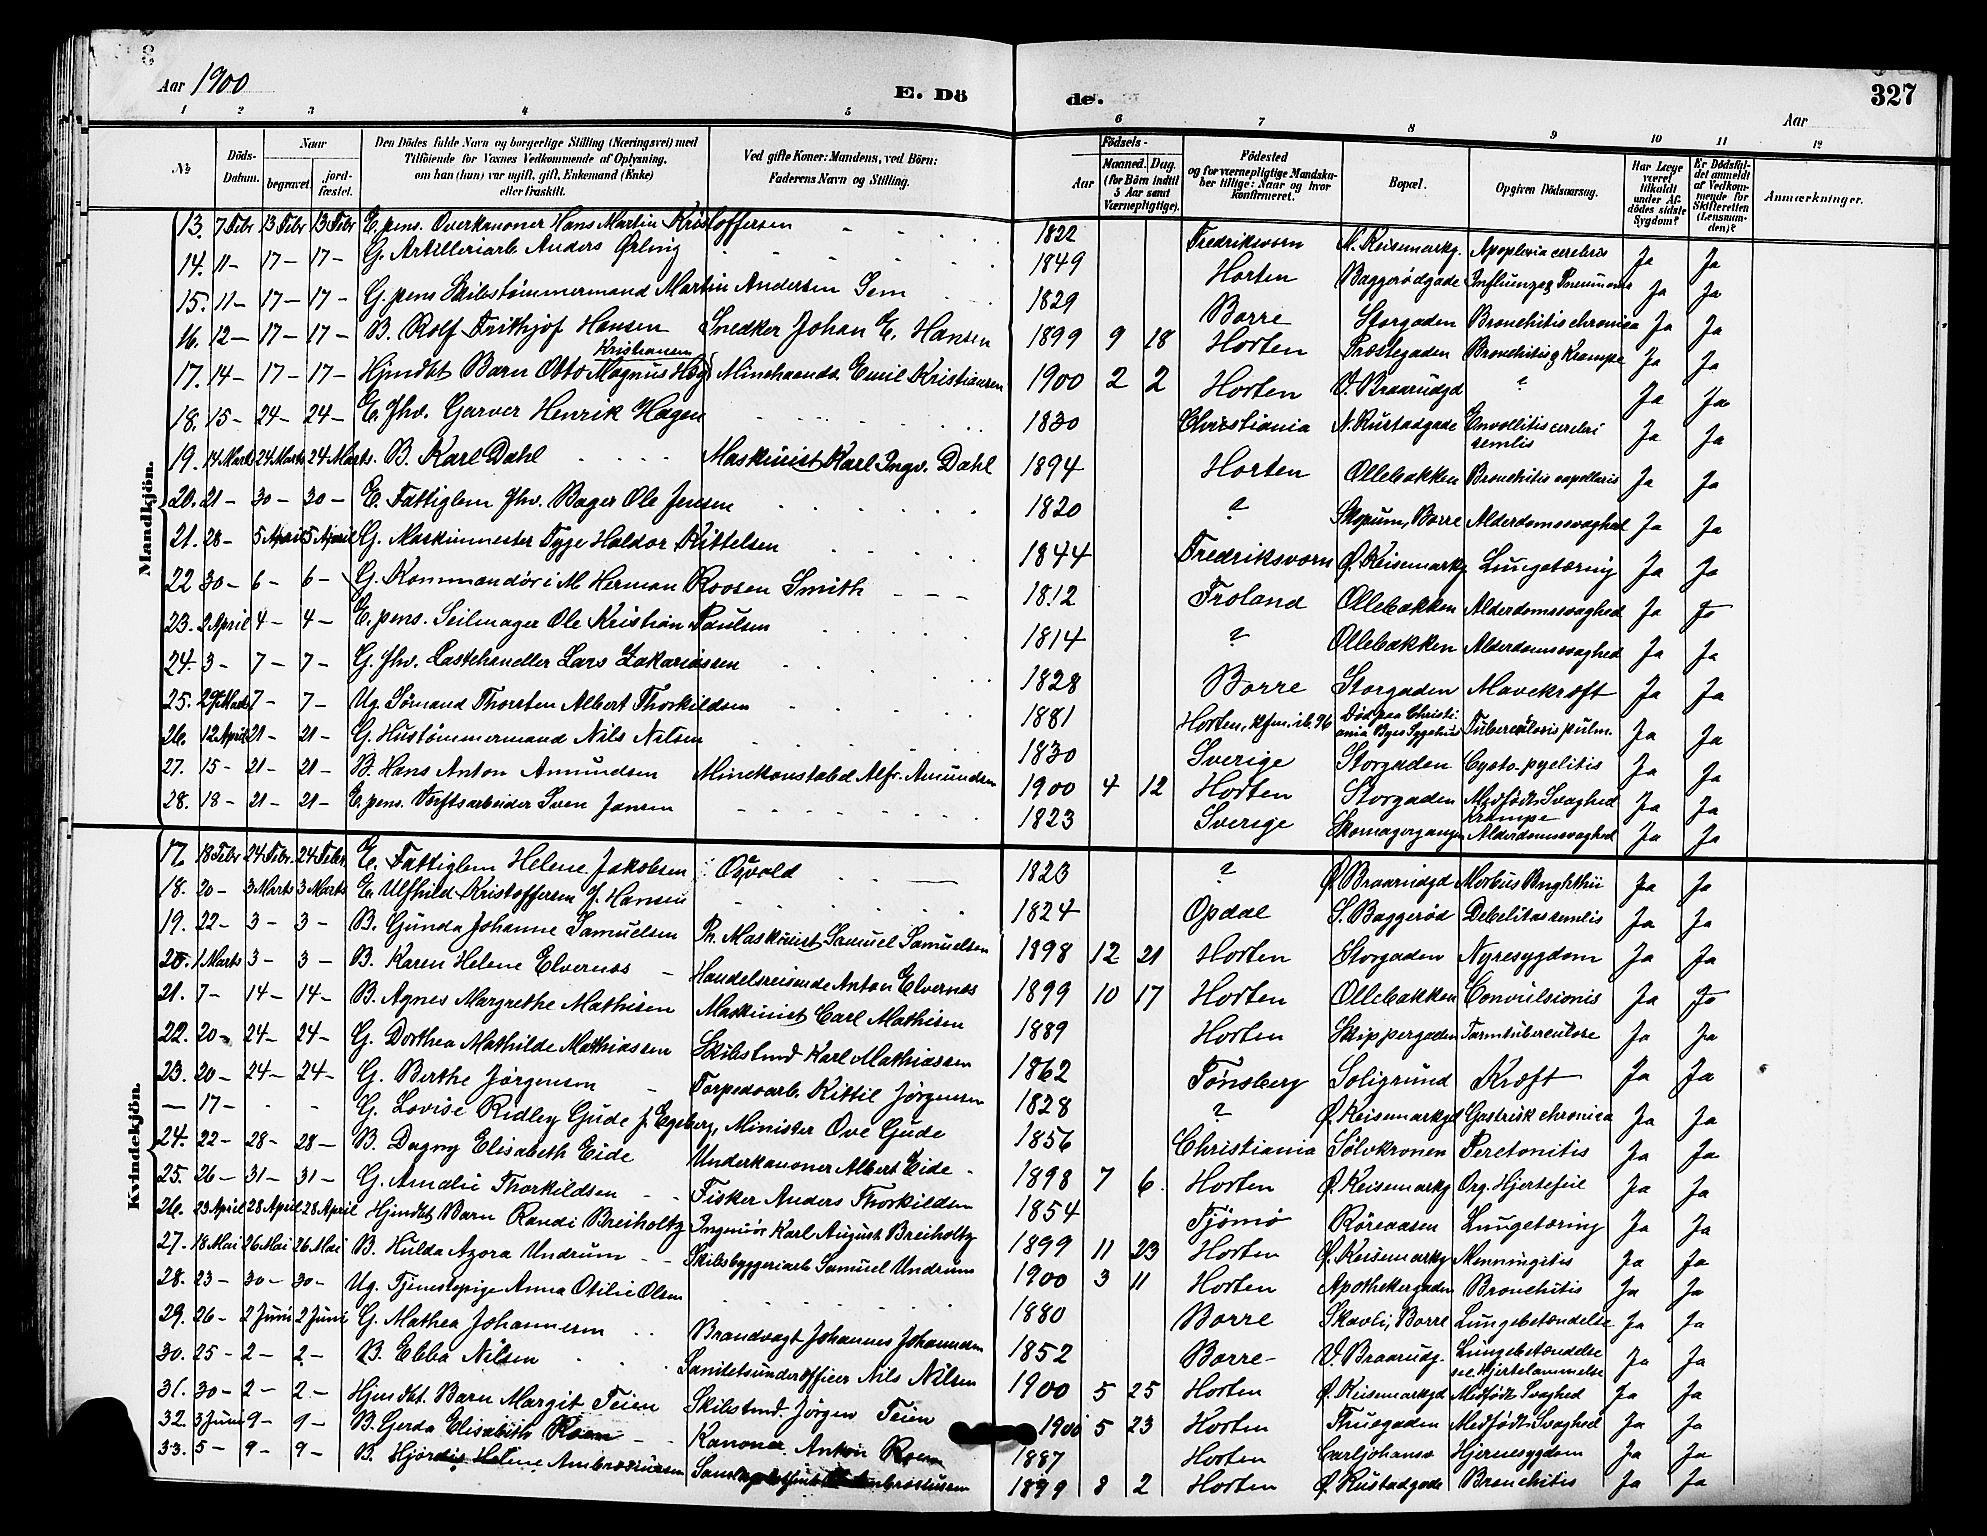 Aar 1900
E. Dö de.
327
Aar
1 2 3 4 5 6 7 8 9 10 11 12
№ Döds-Datum. Naar begravet. jord-fæstet. Den Dödes fulde Navn og borgerlige Stilling (Næringsvei) med Tilföiende for Voxnes Vedkommende af Oplysning, om han (hun) var ugift, gift, Enkemand (Enke) eller fraskilt. Ved gifte Koner: Mandens, ved Börn: Faderens Navn og Stilling. Födsels- Aar Maaned. Dag. (for Börn indtil 5 Aar samt Værnepligtige). Födested og for værnepligtige Mandskaber tillige: Naar og hvor konfirmeret. Bopæl. Opgiven Dödsaarsag. Har Læge været tilkaldt under Afdödes sidste Sygdom? Er Dödsfaldet anmeldt af Vedkommende for Skifteretten (Lensmanden)? Anmærkninger.
Mandkjön.
13. 7 Febr 13 Febr 13 Febr E. pens. Overkanoner Hans Martin Kristoffersen 1822 Fredriksvern N. Keisemarkg. Apoplexia cerebris Ja Ja
14. 11 - 17 - 17 - G. Artilleriarb. Anders Ørling 1849 Horten Baggerødgade Influenza & Pneumoni Ja Ja
15. 11 - 17 - 17 - G. pens Skibstømmermand Martin Andersen Sem 1829 Borre Storgaden Bronchitis chronica Ja Ja
16. 12 - 17 - 17 - B. Rolf Frithjof Hansen Snedker Johan E. Hansen 1899 9 18 Horten Præstegaden Bronchitis & Krampe Ja Ja
Kristiansen
17. 14 - 17 - 17 - Hjmdbt Barn Otto Magnus Minehaandv. Emil Kristiansen 1900 2 2 Horten V. Braarudgd ? Ja Ja
18. 15 - 24 - 24 - E. fhv. Garver Henrik Hagen 1830 Christiania N. Rustadgade cerebri semlis Ja Ja
19. 14 Marts 24 Marts 24 Marts. B. Karl Dahl Maskinist Karl Ingv. Dahl 1894 Horten Ollebakken Bronchitis capellaris Ja Ja
20. 21 - 30 - 30 - E. Fattiglem fhv. Bager Ole Jensen 1820 ? Skopum, Borre Alderdomssvaghed Ja Ja
21. 28 - 5 April 5 April G. Maskinmester Tyge Haldor Kittelsen 1844 Fredriksvern Ø. Keisemarkg Lungetæring Ja Ja
22 30 - 6 - 6 - G. Kommandør i M. Herman Roosen Smith 1812 Froland Ollebakken Alderdomssvaghed Ja Ja
23. 2 April 4 - 4 - E. pens. Seilmager Ole Kristian Paulsen 1814 ? Ollebakken Alderdomssvaghed Ja Ja
24. 3 - 7 - 7 - G. fhv. Lastehandler Lars Zakariassen 1828 Borre Storgaden Mavekræft Ja Ja
25. 29 Marts 7 - 7 - Ug. Sømand Thorsten Albert Thorkildsen 1881 Horten, kfm. ib. 96 Død paa Christiania Byes Sygehus Tuberculosis pulm. Ja Ja
26. 12 April 21 - 21 - G. Hustømmermand Nils Nilsen 1830 Sverige Storgaden Cysto-pyelitis Ja Ja
27. 15 - 21 - 21 - B. Hans Anton Amundsen Minekonstabel Alfr. Amundsen 1900 4 12 Horten Storgaden Medfødt Svaghed Krampe Ja Ja
28. 18 - 21 - 21 - E. pens. Værftsarbeider Sven Jansen 1823 Sverige Skomagergangen Alderdomssvaghed Ja Ja
Kvindekjön.
17. 18 Febr 24 Febr. 24 Febr. E. Fattiglem Helene Jakobsen f. Oxvold 1823 ? Ø. Braarudgd Morbus Ja Ja
18. 20 - 3 Marts 3 Marts E. Ulfhild Kristoffersen f. Hansen 1824 Opdal S. Baggerød Debelitas semlis Ja Ja
19. 22 - 3 - 3 - B. Gunda Johanne Samuelsen Pr. Maskinist Samuel Samuelsen 1898 12 21 Horten Storgaden Nyresygdom Ja Ja
20. 1 Marts 3 - 3 - B. Karen Helene Elvernes Handelsreisende Anton Elvernes 1899 10 17 Horten Ollebakken Convulsionis Ja Ja
21. 7 - 14 - 14 - B. Agnes Margrethe Mathisen Maskinist Carl Mathisen 1889 Horten Skippergaden Tarmtuberculose Ja Ja
22. 20 - 24 - 24 - G. Dorthea Mathilde Mathiassen Skibstmd. Karl Mathiassen 1862 Tønsberg Soligrund Kræft Ja Ja
23. 20 - 24 - 24 - G. Berthe Jørgensen Torpedoarb. Kittil Jørgensen 1828 ? Ø. Keisemarkgd Gastrisk chronica Ja Ja
— 17 - G. Lovise Ridley Gude f. Egeberg, Minister Ove Gude 1856 Christiania Sølvkronen Peretonitis Ja Ja
24. 22 - 28 - 28 - B. Dagny Elisabeth Eide Underkanoner Albert Eide 1898 7 6 Horten Ø. Keisemarkg Org. Hjertefeil Ja Ja
25. 26 - 31 - 31 - G. Amalie Thorkildsen Fisker Anders Thorkildsen 1854 Tjømø Røreaasen Lungetæring Ja Ja
26. 23 April 28 April 28 April Hjmdbt Barn Randi Breiholtz Ingeniør Karl August Breiholtz 1899 11 23 Horten Ø. Keisemarkg Menningitis Ja Ja
27. 18 Mai 26 Mai 26 Mai B. Hulda Azora Undrum Skibsbyggeriarb. Samuel Undrum 1900 3 11 Horten Apothekergaden Bronchitis Ja Ja
28. 23 - 30 - 30 - Ug. Tjenestepige Anna Otilie Olsen 1880 Borre Skavli, Borre Lungebetændelse Ja Ja
29. 26 - 2 Juni 2 Juni G. Mathea Johannesen Brandvagt Johannes Johannesen 1852 Borre V. Braarudg. Lungebetændelse Hjertelammelse Ja Ja
30. 25 - 2 - 2 - B. Ebba Nilsen Sanitetsunderofficer Nils Nilsen 1900 5 25 Horten Ø. Keisemarkgd Medfødt Svaghed Ja Ja
31. 30 - 2 - 2 - Hjmdbt. Barn Margit Teien Skibstmd. Jørgen Teien 1900 5 23 Horten Thuegaden Medfødt Svaghed Ja Ja
32. 3 Juni 9 - 9 - B. Gerda Elisabeth Roen Kanoner Anton Roen 1887 Horten Carljohansv Hjernesygdom Ja Ja
33. 5 - 9 - 9 - B. Hjørdis Helene Ambrosiussen Ambrosiussen 1899 8 2 Horten Ø. Rustadgade Bronchitis Ja Ja